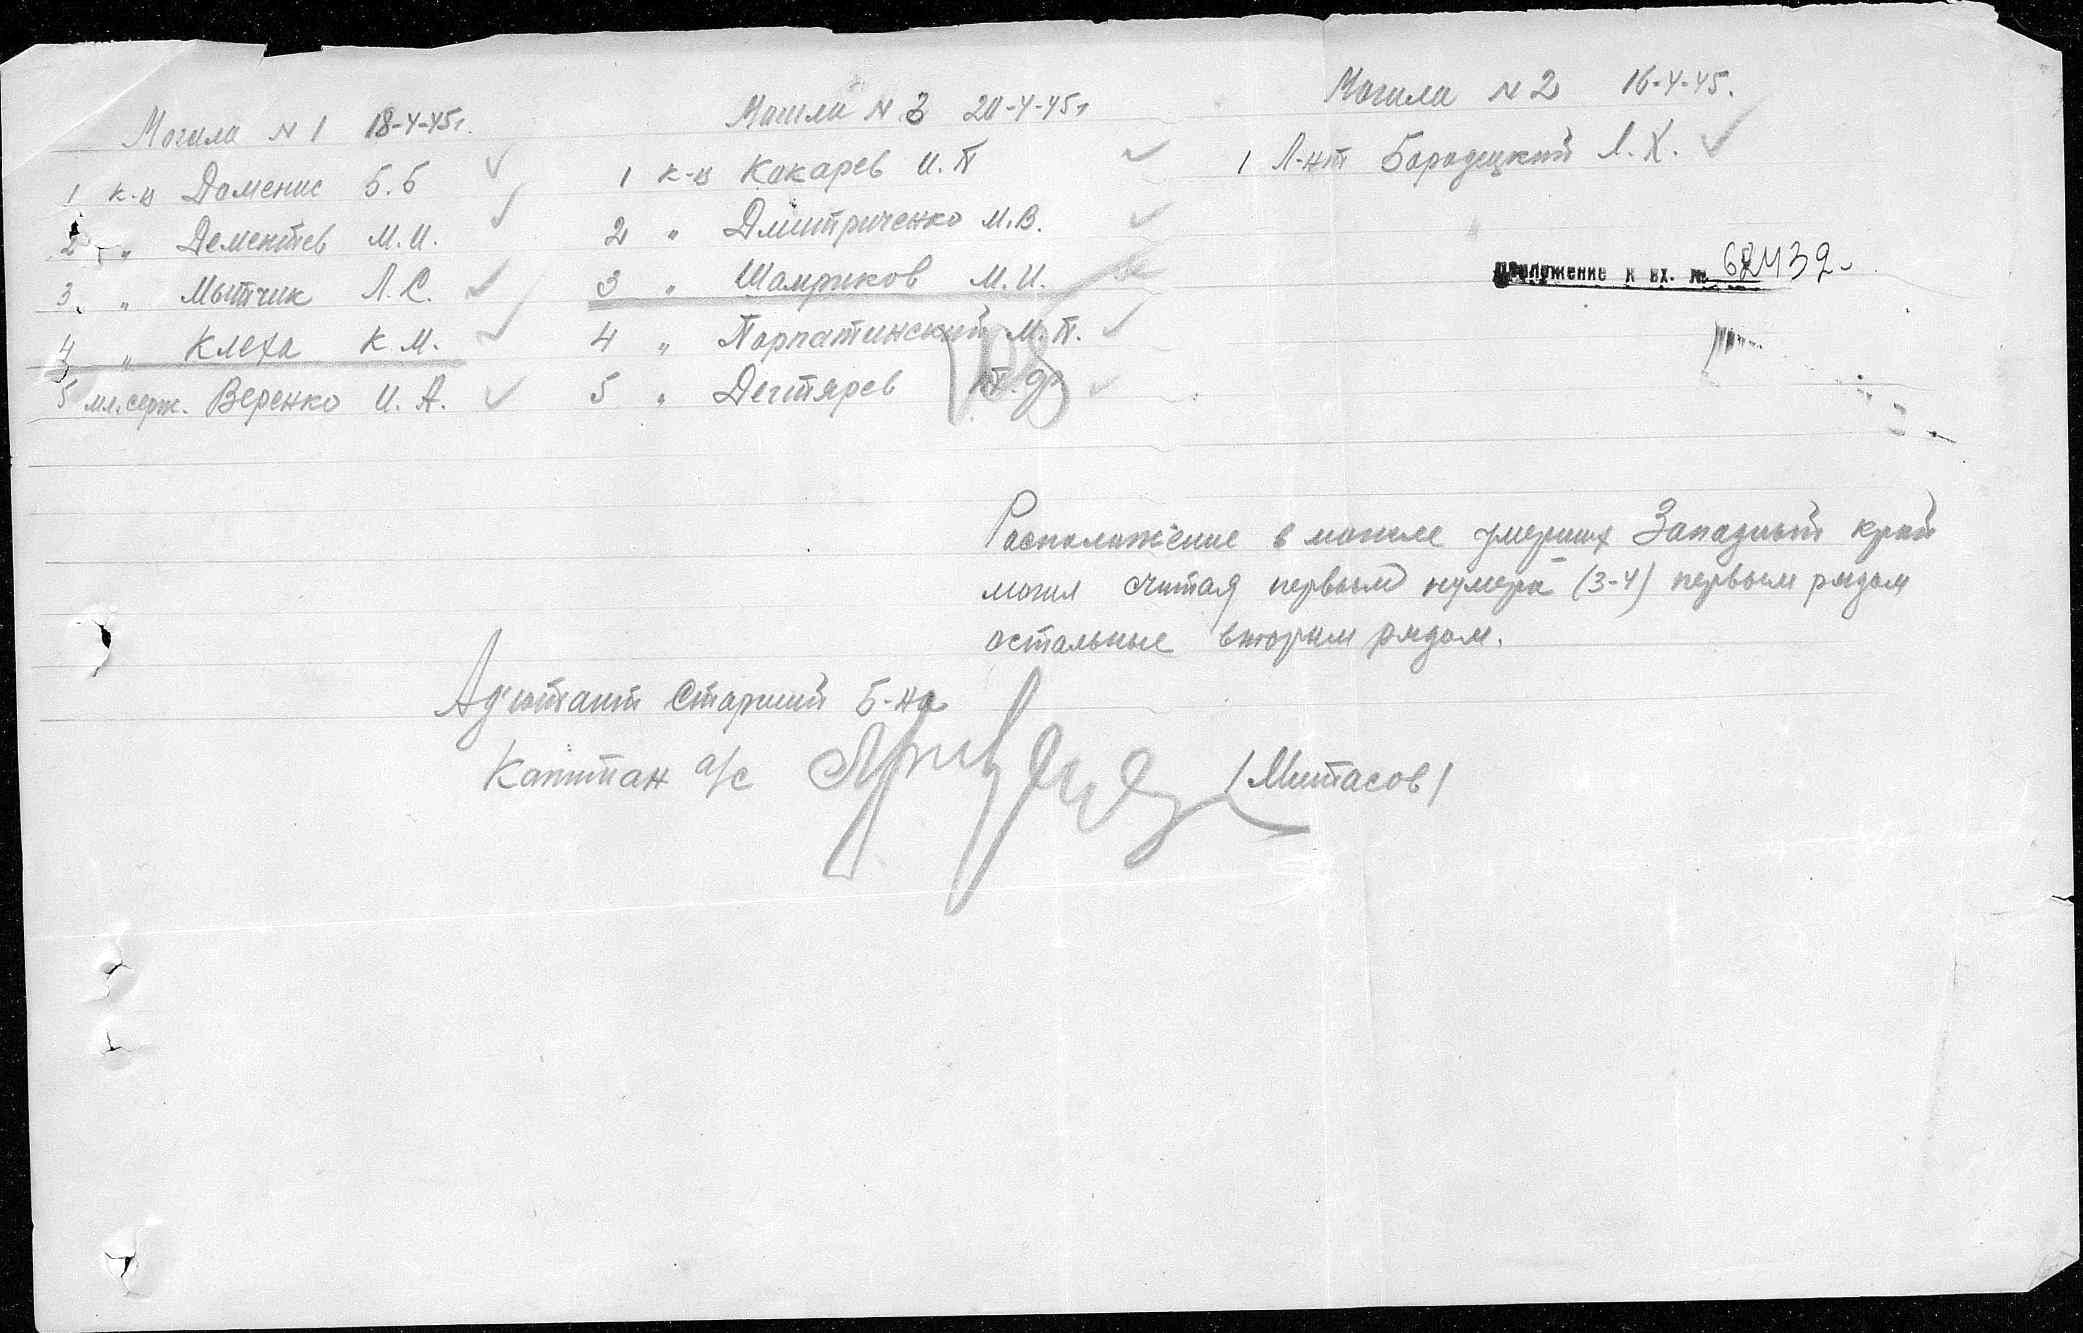 Могила N 1 18-4-45г.
1 к-ц Доменис Б.Б
2 " Дементев М.И.
3. " Мытчик Л.С.
4 " Клеха К М.
5 мл.серж. Веренко И. А.
Могила N 3 20-4-45г
1 к-ц Кокарев И.П
2 " Дмитриченко М.В.
3 " Шамриков М.И.
4 " Порпатинский М.П.
5 " Дегтярев
Могила N 2 16-4-45.
1 Л-нт Бородецкий Л.Х.
Приложение к вх. № 62432
Росположение в могиле умерших Западный край
могил считая первым нумера (3-4) первым рядом
остальные вторым рядом.
Адютант Старший Б-на
Капитан а/с
/Митасов/